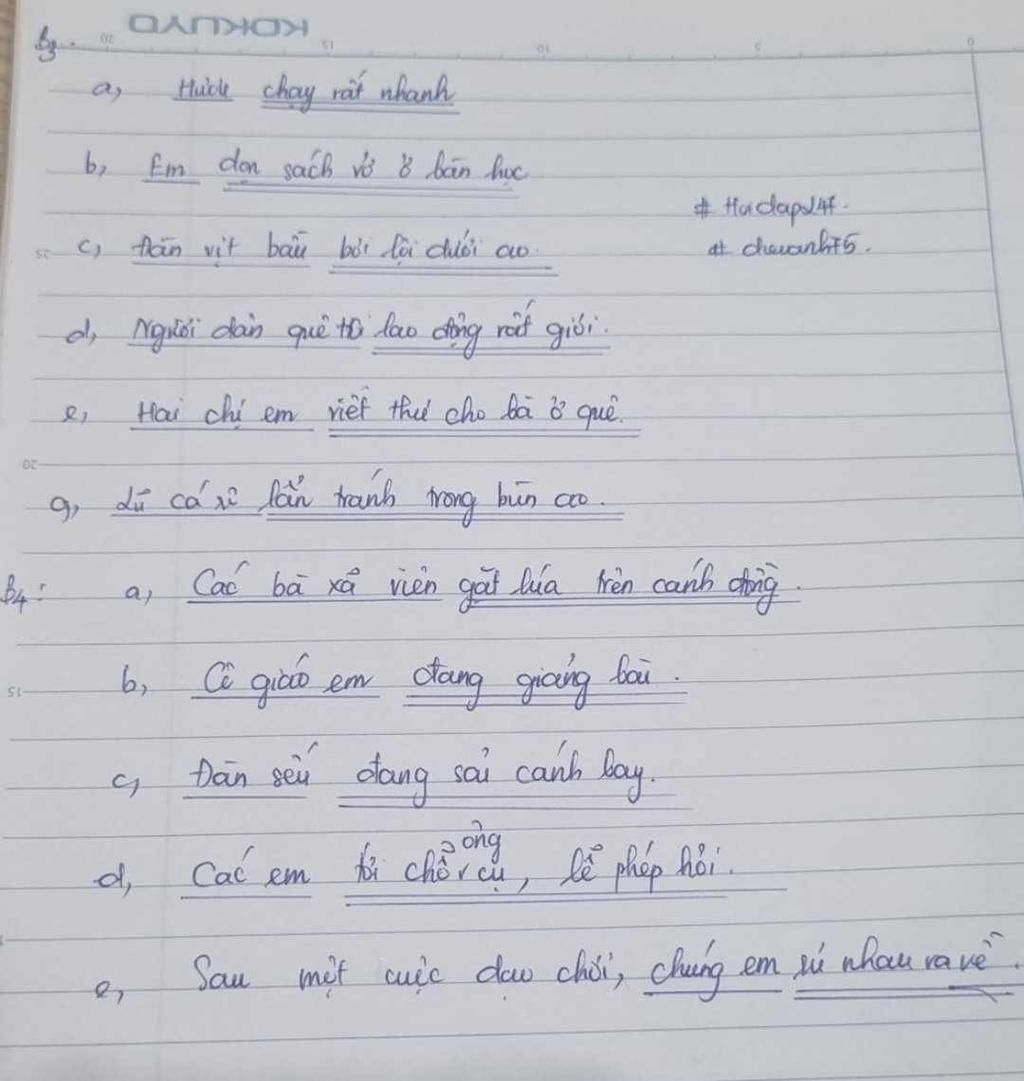 KOKUYO
20 15 10 5 0
B3.
a, Hươu chạy rất nhanh
b, Em dọn sách vở ở bàn học
# Hoidap247.
c, Đàn vịt bầu bơi lội dưới ao.
25
d, Người dân quê tôi lao động rất giỏi.
e, Hai chị em viết thư cho bà ở quê.
20
g, Lũ cá rô lẩn tránh trong bùn ao.
B4: a, Các bà xã viên gặt lúa trên cánh đồng.
15 b, Cô giáo em đang giảng bài.
c, Đàn sếu đang sải cánh bay.
d, Các em tới chỗ ông cụ, lễ phép hỏi.
e, Sau một cuộc dạo chơi, chúng em rủ nhau ra về.